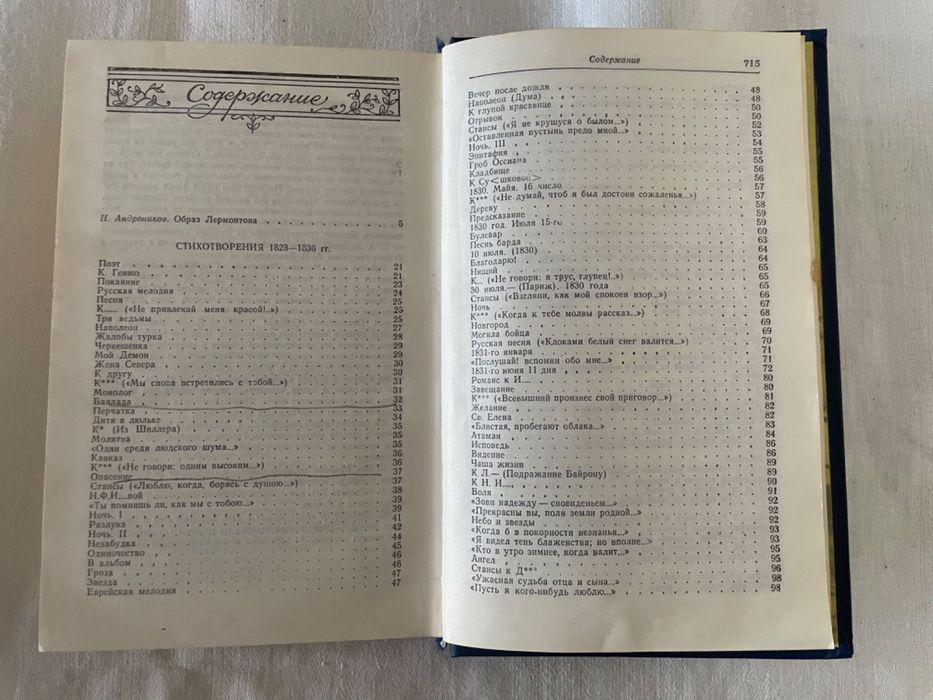 Содержание
И. Андроников. Образ Лермонтова . . . 5
СТИХОТВОРЕНИЯ 1828—1836 гг.
Поэт . . . 21
К Гению . . . 21
Покаяние . . . 23
Русская мелодия . . . 24
Песня . . . 25
К..... («Не привлекай меня красой!..») . . . 25
Три ведьмы . . . 25
Наполеон . . . 27
Жалобы турка . . . 28
Черкешенка . . . 29
Мой Демон . . . 29
Жена Севера . . . 30
К другу . . . 30
К*** («Мы снова встретились с тобой...») . . . 31
Монолог . . . 31
Баллада . . . 32
Перчатка . . . 33
Дитя в люльке . . . 34
К* (Из Шиллера) . . . 35
Молитва . . . 35
«Один среди людского шума...» . . . 35
Кавказ . . . 36
К*** («Не говори: одним высоким...») . . . 36
Опасение . . . 37
Стансы («Люблю, когда, борясь с душою...») . . . 37
Н.Ф.И....вой . . . 38
«Ты помнишь ли, как мы с тобою...» . . . 39
Ночь. I . . . 39
Разлука . . . 41
Ночь. II . . . 42
Незабудка . . . 44
Одиночество . . . 45
В альбом . . . 46
Гроза . . . 46
Звезда . . . 47
Еврейская мелодия . . . 47
Содержание 715
Вечер после дождя . . . 48
Наполеон (Дума) . . . 48
К глупой красавице . . . 50
Отрывок . . . 50
Стансы («Я не крушуся о былом...») . . . 52
«Оставленная пустынь предо мной...» . . . 53
Ночь. III . . . 54
Эпитафия . . . 55
Гроб Оссиана . . . 55
Кладбище . . . 56
К Су<шковой> . . . 56
1830. Майя. 16 число . . . 57
К*** («Не думай, чтоб я был достоин сожаленья..») . . . 57
Дереву . . . 58
Предсказание . . . 59
1830 год. Июля 15-го . . . 59
Булевар . . . 60
Песнь барда . . . 63
10 июля. (1830) . . . 64
Благодарю! . . . 64
Нищий . . . 65
К... («Не говори: я трус, глупец!..») . . . 65
30 июля.— (Париж). 1830 года . . . 65
Стансы («Взгляни, как мой спокоен взор...») . . . 66
Ночь . . . 67
К*** («Когда к тебе молвы рассказ...») . . . 68
Новгород . . . 69
Могила бойца . . . 69
Русская песня («Клоками белый снег валится...») . . . 70
1831-го января . . . 71
«Послушай! вспомни обо мне...» . . . 71
1831-го июня 11 дня . . . 72
Романс к И.... . . . 80
Завещание . . . 80
К*** («Всевышний произнес свой приговор...») . . . 81
Желание . . . 82
Св. Елена . . . 82
«Блистая, пробегают облака...» . . . 83
Атаман . . . 84
Исповедь . . . 86
Видение . . . 86
Чаша жизни . . . 89
К Л.— (Подражание Байрону) . . . 89
К Н. И..... . . . 90
Воля . . . 91
«Зови надежду — сновиденьем...» . . . 92
«Прекрасны вы, поля земли родной...» . . . 92
Небо и звезды . . . 92
«Когда б в покорности незнанья...» . . . 93
«Я видел тень блаженства; но вполне...» . . . 93
«Кто в утро зимнее, когда валит...» . . . 95
Ангел . . . 95
Стансы к Д*** . . . 96
«Ужасная судьба отца и сына...» . . . 98
«Пусть я кого-нибудь люблю...» . . . 98